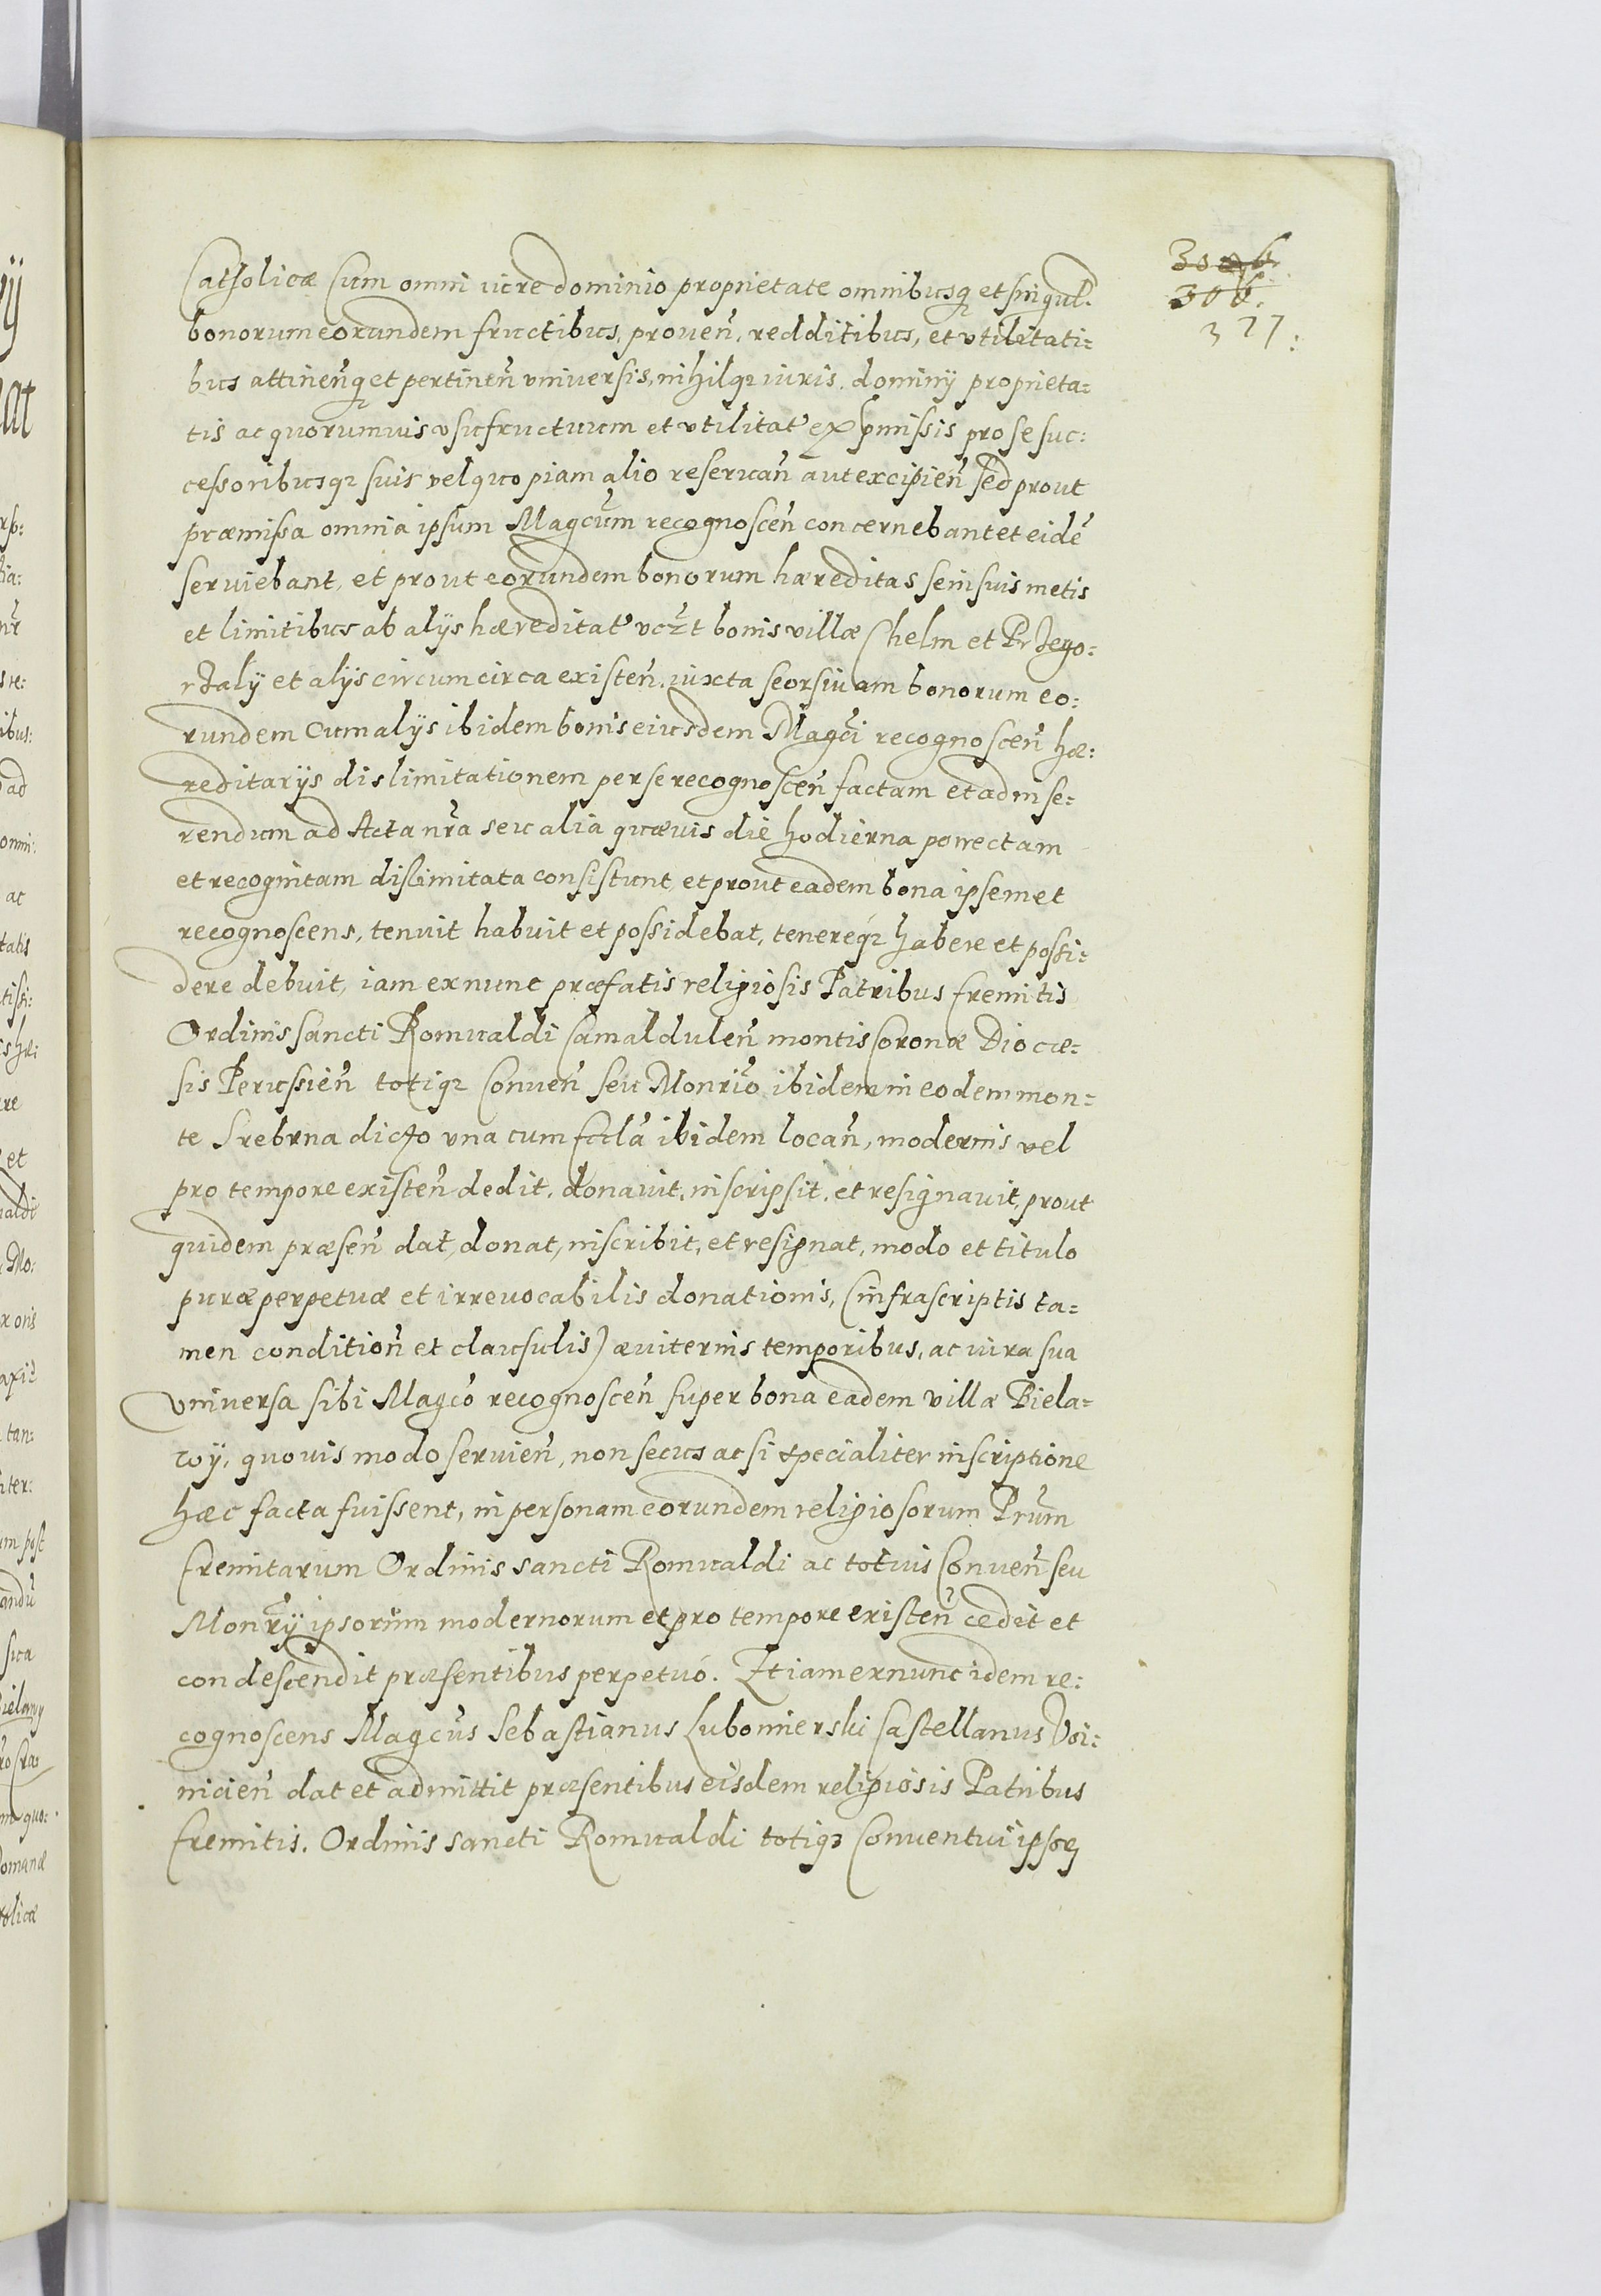 306.
327:
Catholicæ Cum omni iure dominio proprietate omnibusq₃ et singul.
bonorum eorundem fructibus, prouen̄, redditibus, et vtilitati=
bus attinen̄q₃ et pertinen̄ vniversis, nihilq₃ iuris, dominÿ proprieta=
tis ac quorumuis vsufructuum et vtilitat' ex p̄missis pro se suc:
cessoribusq₃ suis vel quopiam alio reseruan̄ aut excipien̄ sed prout
præmissa omnia ipsum Magc̄um recognoscen̄ concernebant et eidē
serviebant, et prout eorundem bonorum hæreditas se in suis metis
et limitibus ab alÿs hæreditat' vc̄zt bonis villæ Chelm et Przego:
rzalÿ et alÿs circumcirca existen̄. iuxta seorsivam bonorum eo:
rundem cum alÿs ibidem bonis eiusdem Magc̄i recognoscen̄ hæ:
reditarÿs dislimitationem per se recognoscen̄ factam et ad inse:
rendum ad Acta nr̄a seu alia quævis die hodierna porrectam
et recognitam dislimitata consistunt, et prout eadem bona ipsemet
recognoscens, tenuit habuit et possidebat, tenereq́₃ habere et possi=
dere debuit, iam ex nunc præfatis religiosis Patribus Eremitis
Ordinis sancti Romualdi Camaldulen̄ montis Coronæ Diocæ=
sis Perussien̄ totiq₃ Conuen̄ seu Monr̄io ibidem in eodem mon=
te Srebrna dicto vna cum Eccl̄a ibidem locan̄, modernis vel
pro tempore existen̄ dedit, donavit, inscripsit, et resignavit, prout
quidem præsen̄ dat, donat, inscribit, et resignat, modo et titulo
puræ perpetuæ et irrevocabilis donationis, (infrascriptis ta=
men condition̄ et clausulis) æviternis temporibus, ac iura sua
vniversa sibi Magc̄o recognoscen̄ super bona eadem villæ Biela=
wÿ, quovis modo servien̄, non secus ac si specialiter inscriptione
hæc facta fuissent, in personam eorundem religiosorum Pr̄um
Eremitarum Ordinis sancti Romualdi ac totius Conuen̄ seu
Monr̄ÿ ipsorum modernorum et pro tempore existen̄ cedit et
condescendit præsentibus perpetuó. Et iam ex nunc idem re:
cognoscens Magc̄us Sebastianus Lubomierski Castellanus Voi:
nicien̄ dat et admittit præsentibus eisdem religiosis Patribus
Eremitis. Ordinis sancti Romualdi totiq₃ Conuentui ipsoꝝ